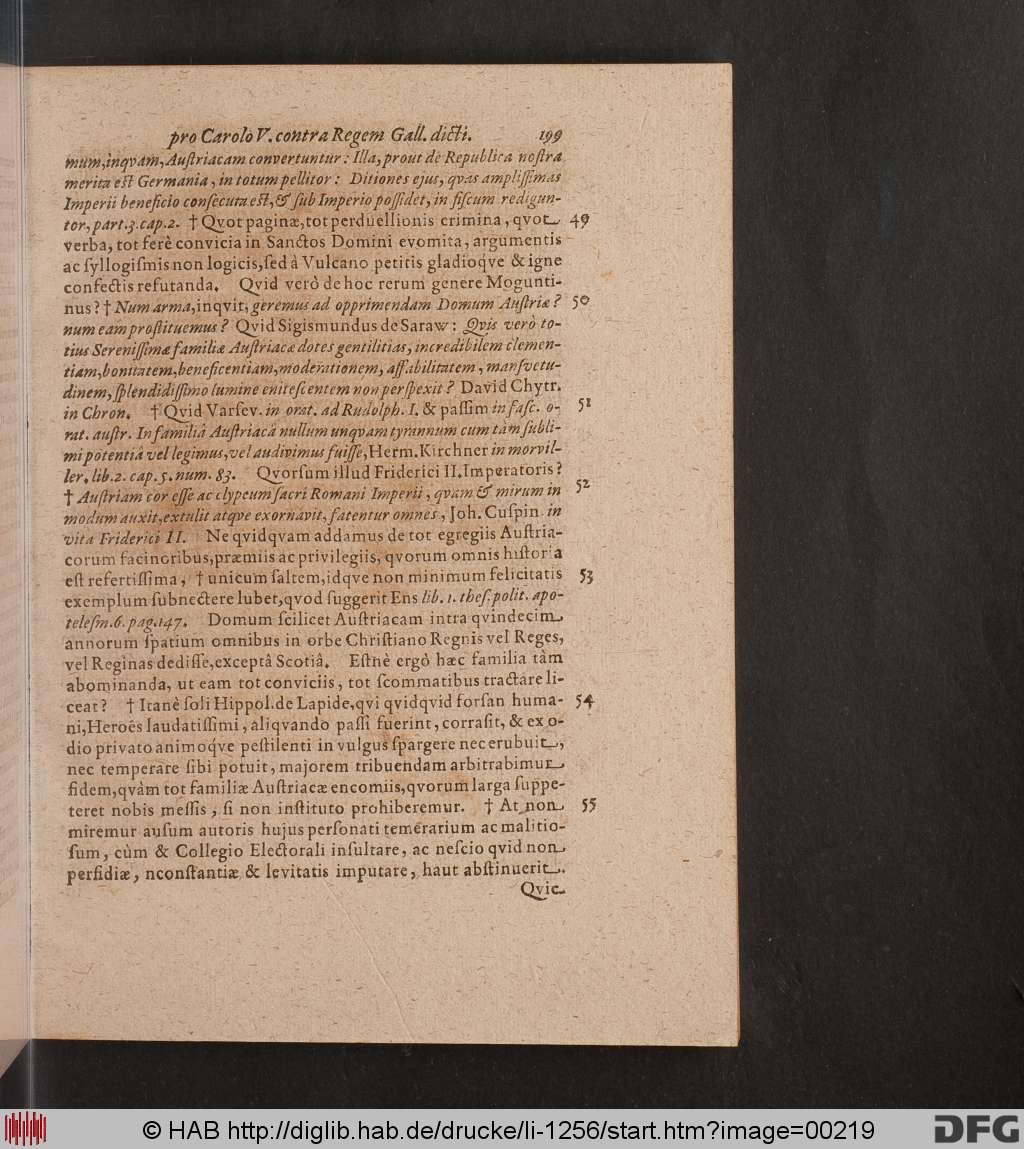 pro Carolo V. contra Regem Gall. dicti. 199
mum, inqvam, Auſtriacam convertuntur: Illa, prout de Republica noſtra
merita eſt Germania, in totum pellitor: Ditiones ejus, qvas ampliſſimas
Imperii beneficio conſecuta eſt, & ſub Imperio poſſidet, in fiſcum redigun-
tor, part. 3. cap. 2. † Qvot paginæ, tot perduellionis crimina, qvot 49
verba, tot ferè convicia in Sanctos Domini evomita, argumentis
ac ſyllogiſmis non logicis, ſed à Vulcano petitis gladioq́ve & igne
confectis refutanda. Qvid verò de hoc rerum genere Mogunti-
nus? † Num arma, inqvit, geremus ad opprimendam Domum Auſtriæ? 50
num eam proſtituemus? Qvid Sigismundus de Saraw: Qvis verò to-
tius Sereniſſimæ familiæ Auſtriacæ dotes gentilitias, incredibilem clemen-
tiam, bonitatem, beneficentiam, moderationem, affabilitatem, manſvetu-
dinem, ſplendidiſſimo lumine eniteſcentem non perſpexit? David Chytr.
in Chron. † Qvid Varſev. in orat. ad Rudolph. I. & paſſim in faſc. o- 51
rat. auſtr. In familiâ Auſtriacâ nullum unqvam tyrannum cum tàm ſubli-
mi potentiâ vel legimus, vel audivimus fuiſſe, Herm. Kirchner in morvil-
ler. lib. 2. cap. 5. num. 83. Qvorſum illud Friderici II. Imperatoris?
† Auſtriam cor eſſe ac clypeum ſacri Romani Imperii, qvam & mirum in 52
modum auxit, extulit atqve exornavit, fatentur omnes, Joh. Cuſpin. in
vita Friderici II. Ne qvidqvam addamus de tot egregiis Auſtria-
corum facinoribus, præmiis ac privilegiis, qvorum omnis hiſtoria
eſt refertiſſima, † unicum ſaltem, idqve non minimum felicitatis 53
exemplum ſubnectere lubet, qvod ſuggerit Ens lib. 1. theſ. polit. apo-
teleſm. 6. pag. 147. Domum ſcilicet Auſtriacam intra qvindecim
annorum ſpatium omnibus in orbe Chriſtiano Regnis vel Reges,
vel Reginas dediſſe, exceptâ Scotiâ. Eſtnè ergò hæc familia tàm
abominanda, ut eam tot conviciis, tot ſcommatibus tractare li-
ceat? † Itanè ſoli Hippol. de Lapide, qvi qvidqvid forſan huma- 54
ni, Heroës laudatiſſimi, aliqvando paſſi fuerint, corraſit, & ex o-
dio privato animoq́ve peſtilenti in vulgus ſpargere nec erubuit,
nec temperare ſibi potuit, majorem tribuendam arbitrabimur
fidem, qvàm tot familiæ Auſtriacæ encomiis, qvorum larga ſuppe-
teret nobis meſſis, ſi non inſtituto prohiberemur. † At non 55
miremur auſum autoris hujus perſonati temerarium ac malitio-
ſum, cùm & Collegio Electorali inſultare, ac neſcio qvid non
perfidiæ, nconſtantiæ & levitatis imputare, haut abſtinuerit.
Qvic
© HAB http://diglib.hab.de/drucke/li-1256/start.htm?image=00219
DFG